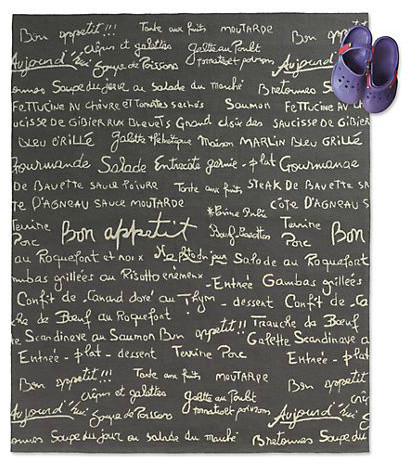 Bon appetit!!! Tarte aux fruits MOUTARDE
crêpes et galettes Galette au Poulet
Aujourd'hui Soupe de Poissons tomates et poivrons
Soupe du jour au salade du marché Bretonnes Soupe du
FETTUCINE AU CHÈVRE et Tomates séchés SAUMON FETTUCINE AU CH
UCISSE DE GIBIER AUX BLEUETS Grand choix des SAUCISSE DE GIBIER
BLEU GRILLÉ Galette Maison MARLIN BLEU GRILLÉ
Gourmande Salade Entrecôte garnie - plat Gourmande
DE BAVETTE SAUCE POIVRE Tarte aux fruits STEAK DE BAVETTE SA
D'AGNEAU SAUCE MOUTARDE CÔTE D'AGNEAU SA
Terrine Porc Bon appetit Terrine Porc Bon
au Roquefort et noix Salade au Roquefort
Gambas grillées au Risotto crémeux - Entrée Gambas grillées
Confit de Canard doré au Thym - dessert Confit de Ca
che de Bœuf au Roquefort Bon appetit!! Tranche de Bœuf
Scandinave au Saumon Galette Scandinave a
Entrée - plat - dessent Terrine Porc Entrée - plat
Bon appetit!!! Tarte aux fruits MOUTARDE Bon appetit!!!
crêpes et galettes Galette au Poulet crêpes et
Aujourd'hui Soupe de Poissons tomates et poivrons Aujourd'hui So
onnes Soupe du jour au salade du marché Bretonnes Soupe du jour